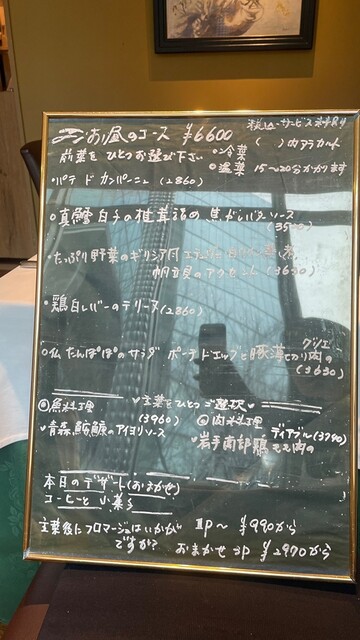 お昼のコース ¥6600 税込・サービス料別
前菜をひとつお選び下さい ○冷菜 ( )内アラカルト
○温菜 15〜20分かかります
・パテ ド カンパーニュ (2860)
○真鱈白子の椎茸 焦がしバターソース
(3500)
・たっぷり野菜のギリシア風
帆立貝のアクセント (3630)
・鶏白レバーのテリーヌ (2860)
グリエ
○仏 たんぽぽのサラダ ポーチドエッグと豚厚切り肉の
(3630)
主菜をひとつご選択
◎魚料理 (3960) ◎肉料理 ディアブル (3740)
青森 鮟鱇のアイヨリソース 岩手南部鶏もも肉の
本日のデザート (おまかせ)
コーヒーと小菓子
主菜後にフロマージュはいかが 1P〜 ¥990から
ですか? おまかせ 3P ¥2970から